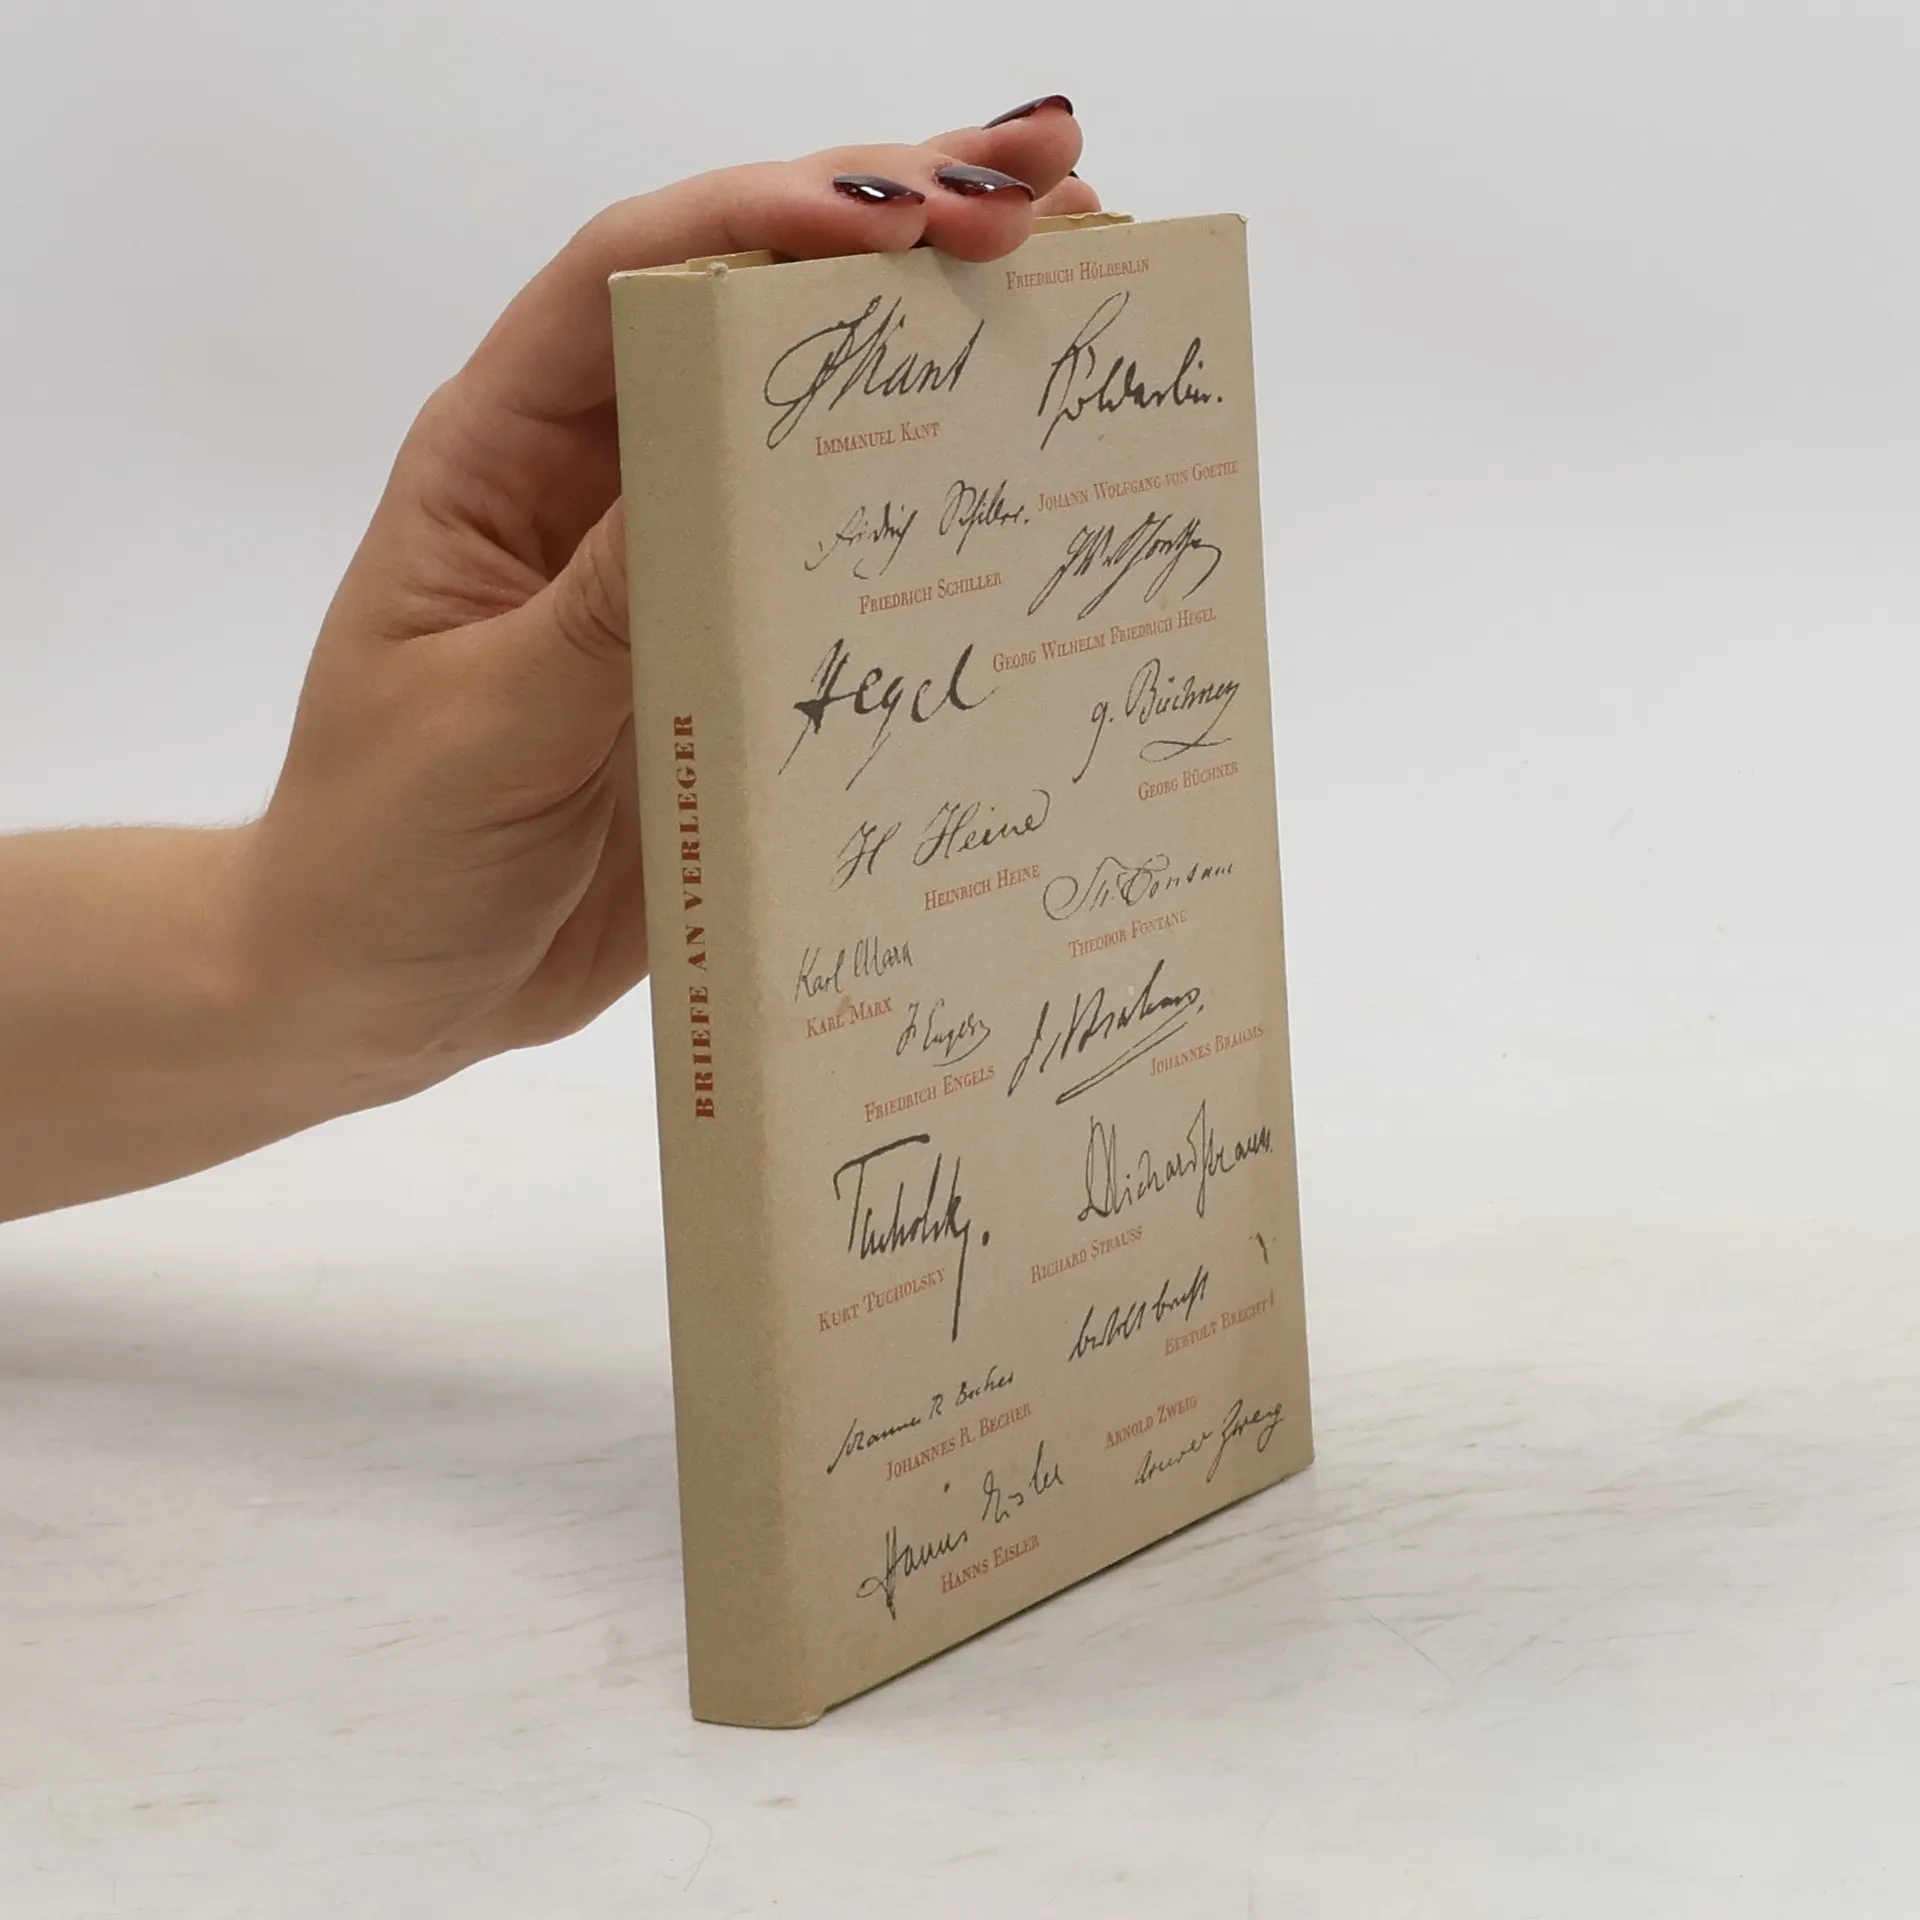 BRIEFE AN VERLEGER
FRIEDRICH HÖLDERLIN
JKant
Hölderlin.
IMMANUEL KANT
Friedrich Schiller.
JOHANN WOLFGANG VON GOETHE
JWvGoethe
FRIEDRICH SCHILLER
GEORG WILHELM FRIEDRICH HEGEL
Hegel
G. Büchner
GEORG BÜCHNER
H Heine
HEINRICH HEINE
Th. Fontane
THEODOR FONTANE
Karl Marx
KARL MARX
F Engels
FRIEDRICH ENGELS
J. Brahms.
JOHANNES BRAHMS
Tucholsky.
KURT TUCHOLSKY
Richard Strauss.
RICHARD STRAUSS
bertolt brecht
BERTOLT BRECHT
Johannes R Becher
JOHANNES R. BECHER
ARNOLD ZWEIG
Arnold Zweig
Hanns Eisler
HANNS EISLER